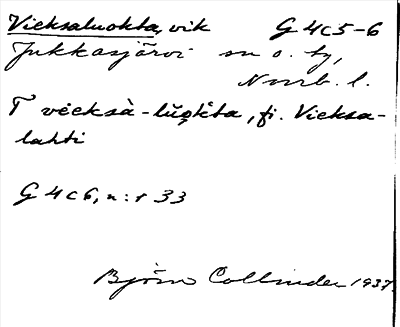 Vieksaluokta, vik G 4c5-6
Jukkasjärvi sn o. by,
Norrb. l.
T vèeksà-lŭokta, fi. Vieksa-
lahti
G 4c6, n:r 33
Björn Collinder 1937.